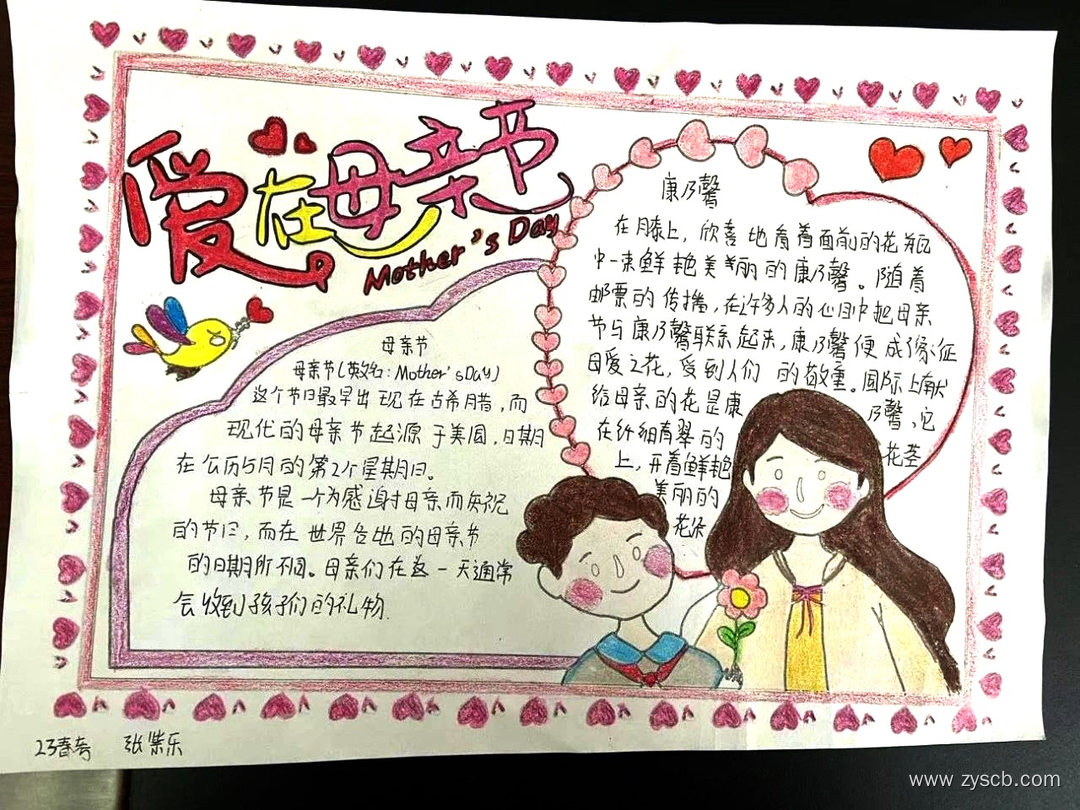 爱在母亲节
Mother's Day
母亲节
母亲节(英文名:Mother'sDay)
这个节日最早出现在古希腊,而
现代的母亲节起源于美国,日期
在公历5月的第2个星期日。
母亲节是一个为感谢母亲而庆祝
的节日,而在世界各地的母亲节
的日期所不同。母亲们在这一天通常
会收到孩子们的礼物
康乃馨
在膝上,欣喜地看着面前的花瓶
中一束鲜艳美丽的康乃馨。随着
邮票的传播,在许多人的心目中把母亲
节与康乃馨联系起来,康乃馨便成了象征
母爱之花,受到人们的敬重。国际上献
给母亲的花是康乃馨、它
在纤细有翠的花茎
上,开着鲜艳
美丽的
花朵
23春 张紫乐
www.zyscb.com